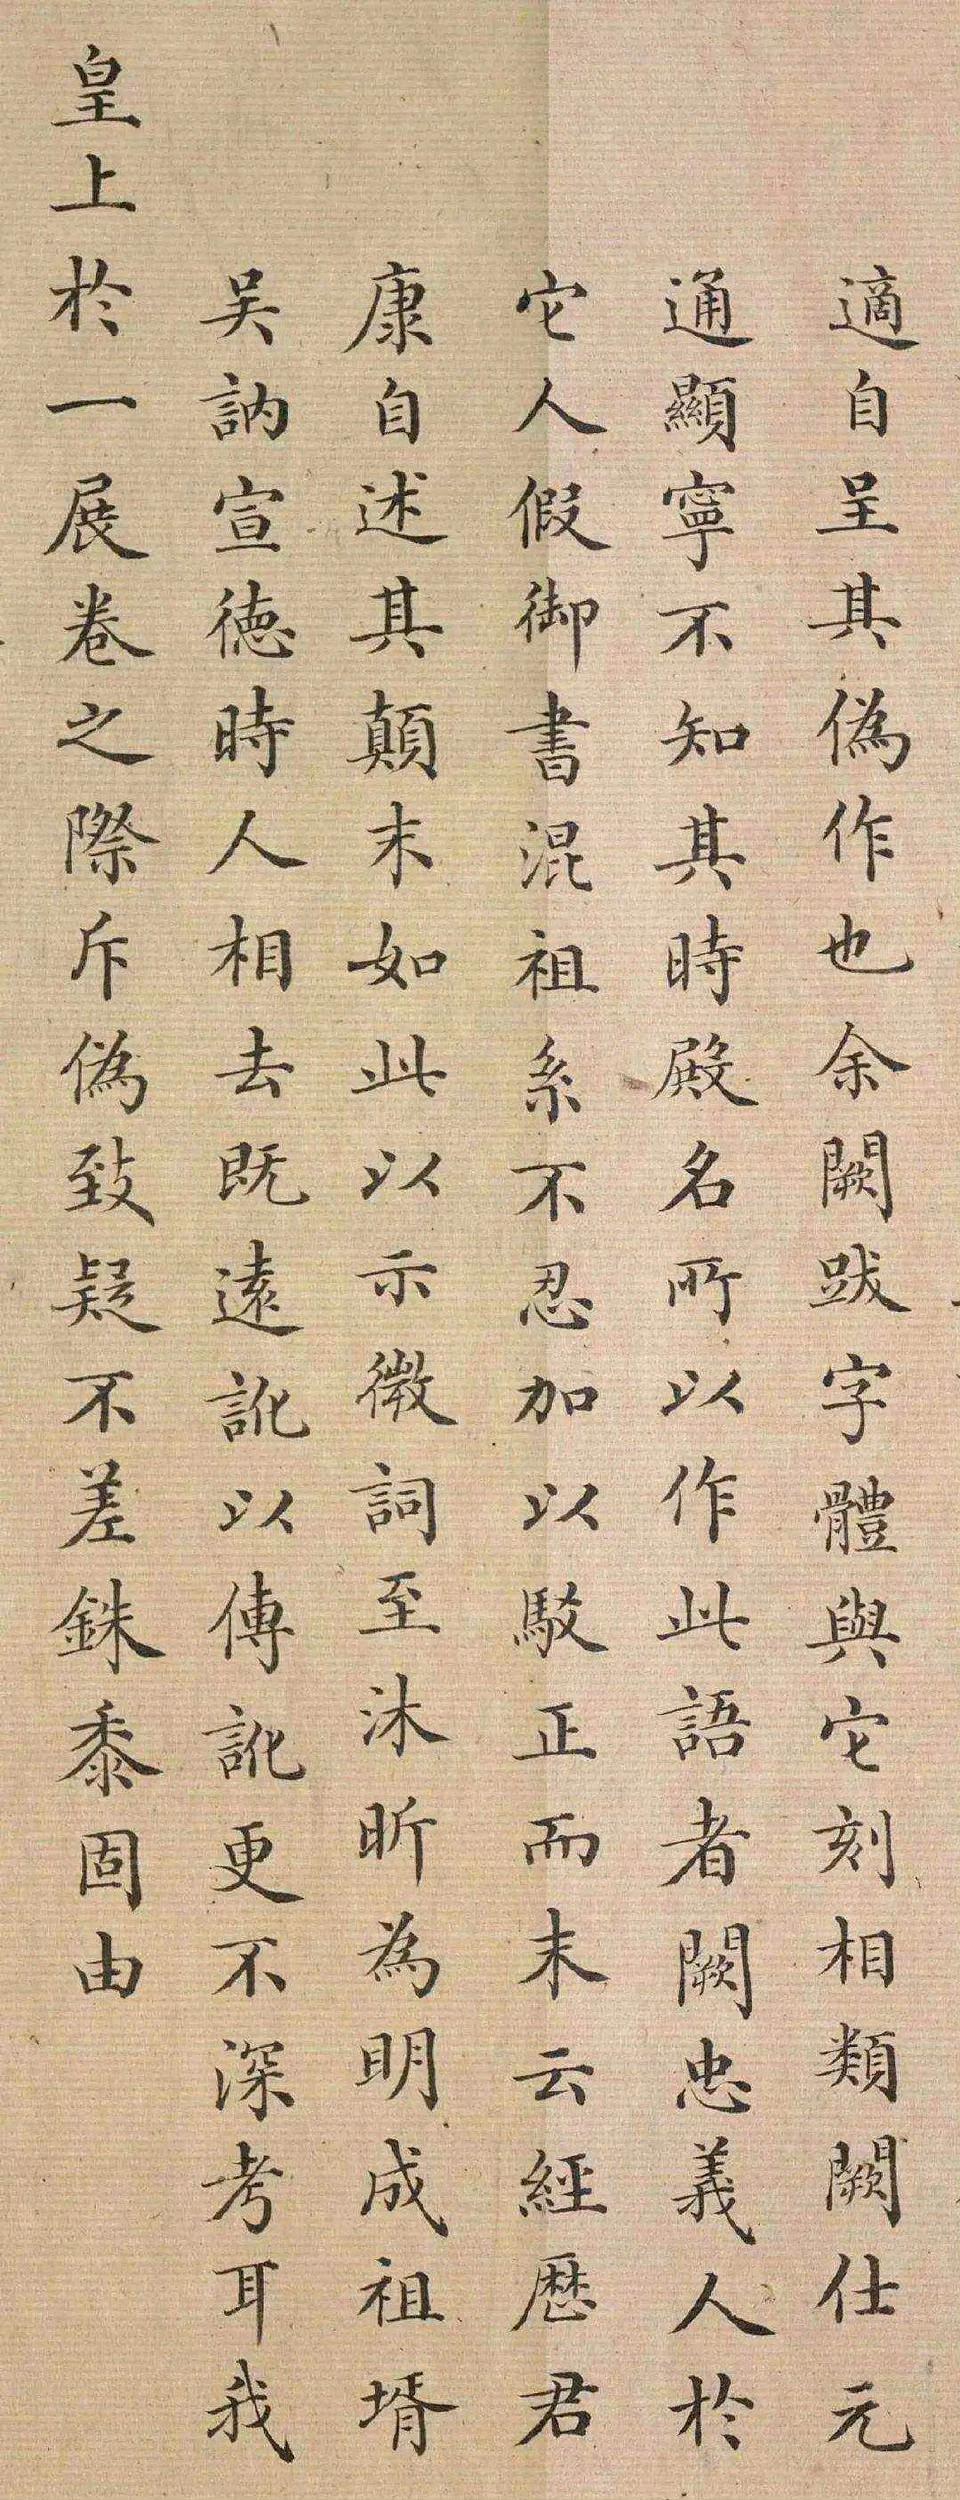 適自呈其偽作也余闕跋字體與它刻相類闕仕元
通顯寧不知其時殿名所以作此語者闕忠義人於
它人假御書混祖系不忍加以駁正而末云經歷君
康自述其顛末如此以示微詞至沐昕為明成祖壻
吴訥宣徳時人相去既遠訛以傳訛更不深考耳我
皇上於一展卷之際斥偽致疑不差銖黍固由